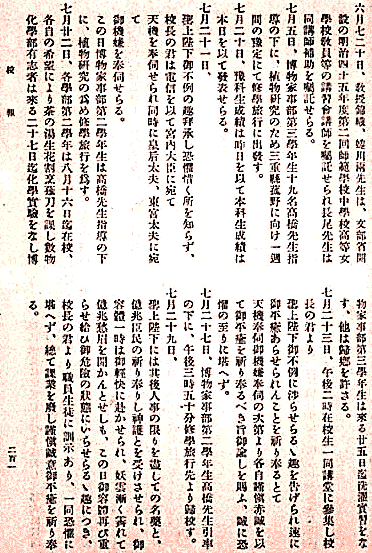 六月二十日、教授錦織、蜷川兩先生は、文部省開
設の明治四十五年度第二回師範學校中學校高等女
學校敎員等の講習會講師を囑託せられ長尾先生は
同講師補助を囑託せらる。
七月五日、博物家事部第三學年生十九名高橋先生指
導の下に、植物研究のため三重縣菰野に向け一週
間の豫定にて修學旅行に出發す。
七月二十日、豫科生成績は昨日を以て本科生成績は
本日を以て發表せらる。
七月二十一日、
聖上陛下御不例の趣拜承し恐懼措く所を知らず、
校長の君は電信を以て宮內大臣に宛て
天機を奉伺せられ同時に皇后太夫、東宮太夫に宛
て
御機嫌を奉伺せらる。
この日博物家事部第二學年生は高橋先生指導の下
に、植物硏究の爲め修學旅行を爲す。
七月廿二日、各學部第三學年は八月十六日迄在校、
各自の希望により茶の湯生花割烹薙刀を課し數物
化學部有志者は來る二十七日迄化學實驗をなし博
物家事部第三學年生は來る廿五日迄洗濯實習をな
す、他は歸鄕を許さる。
七月二十三日、午後二時在校生一同講堂に參集し校
長の君より
聖上陛下御不例に涉らせらるゝ趣を告げられ速に
御不癒あらせられんことを祈り奉るとて
天機奉伺御機嫌奉伺の次第より各自謹愼赤誠を以
て御平癒を祈り奉るべき旨御諭しを賜ふ、誠に恐
懼の至りに堪へず。
七月二十七日、博物家事部第二學年生高橋先生引率
の下に、午後三時五十分修學旅行先より歸校す。
七月二十九日、
聖上陛下には其後人事の限りを盡しての名藥と、
億兆臣民の祈り奉りし神護とを受けさせられ、御
容體一時は御輕快に赴かせられ、妖雲漸く霽れて
億兆愁眉を開かんとせしも、この日御容體再び重
らせ給ひ御危險の狀態にゐらせらるゝ趣につき、
校長の君より職員生徒に訓示あり、一同恐懼に
堪へず、總て課業を廢し謹愼誠意御平癒を祈り奉
る。
校報
二百一